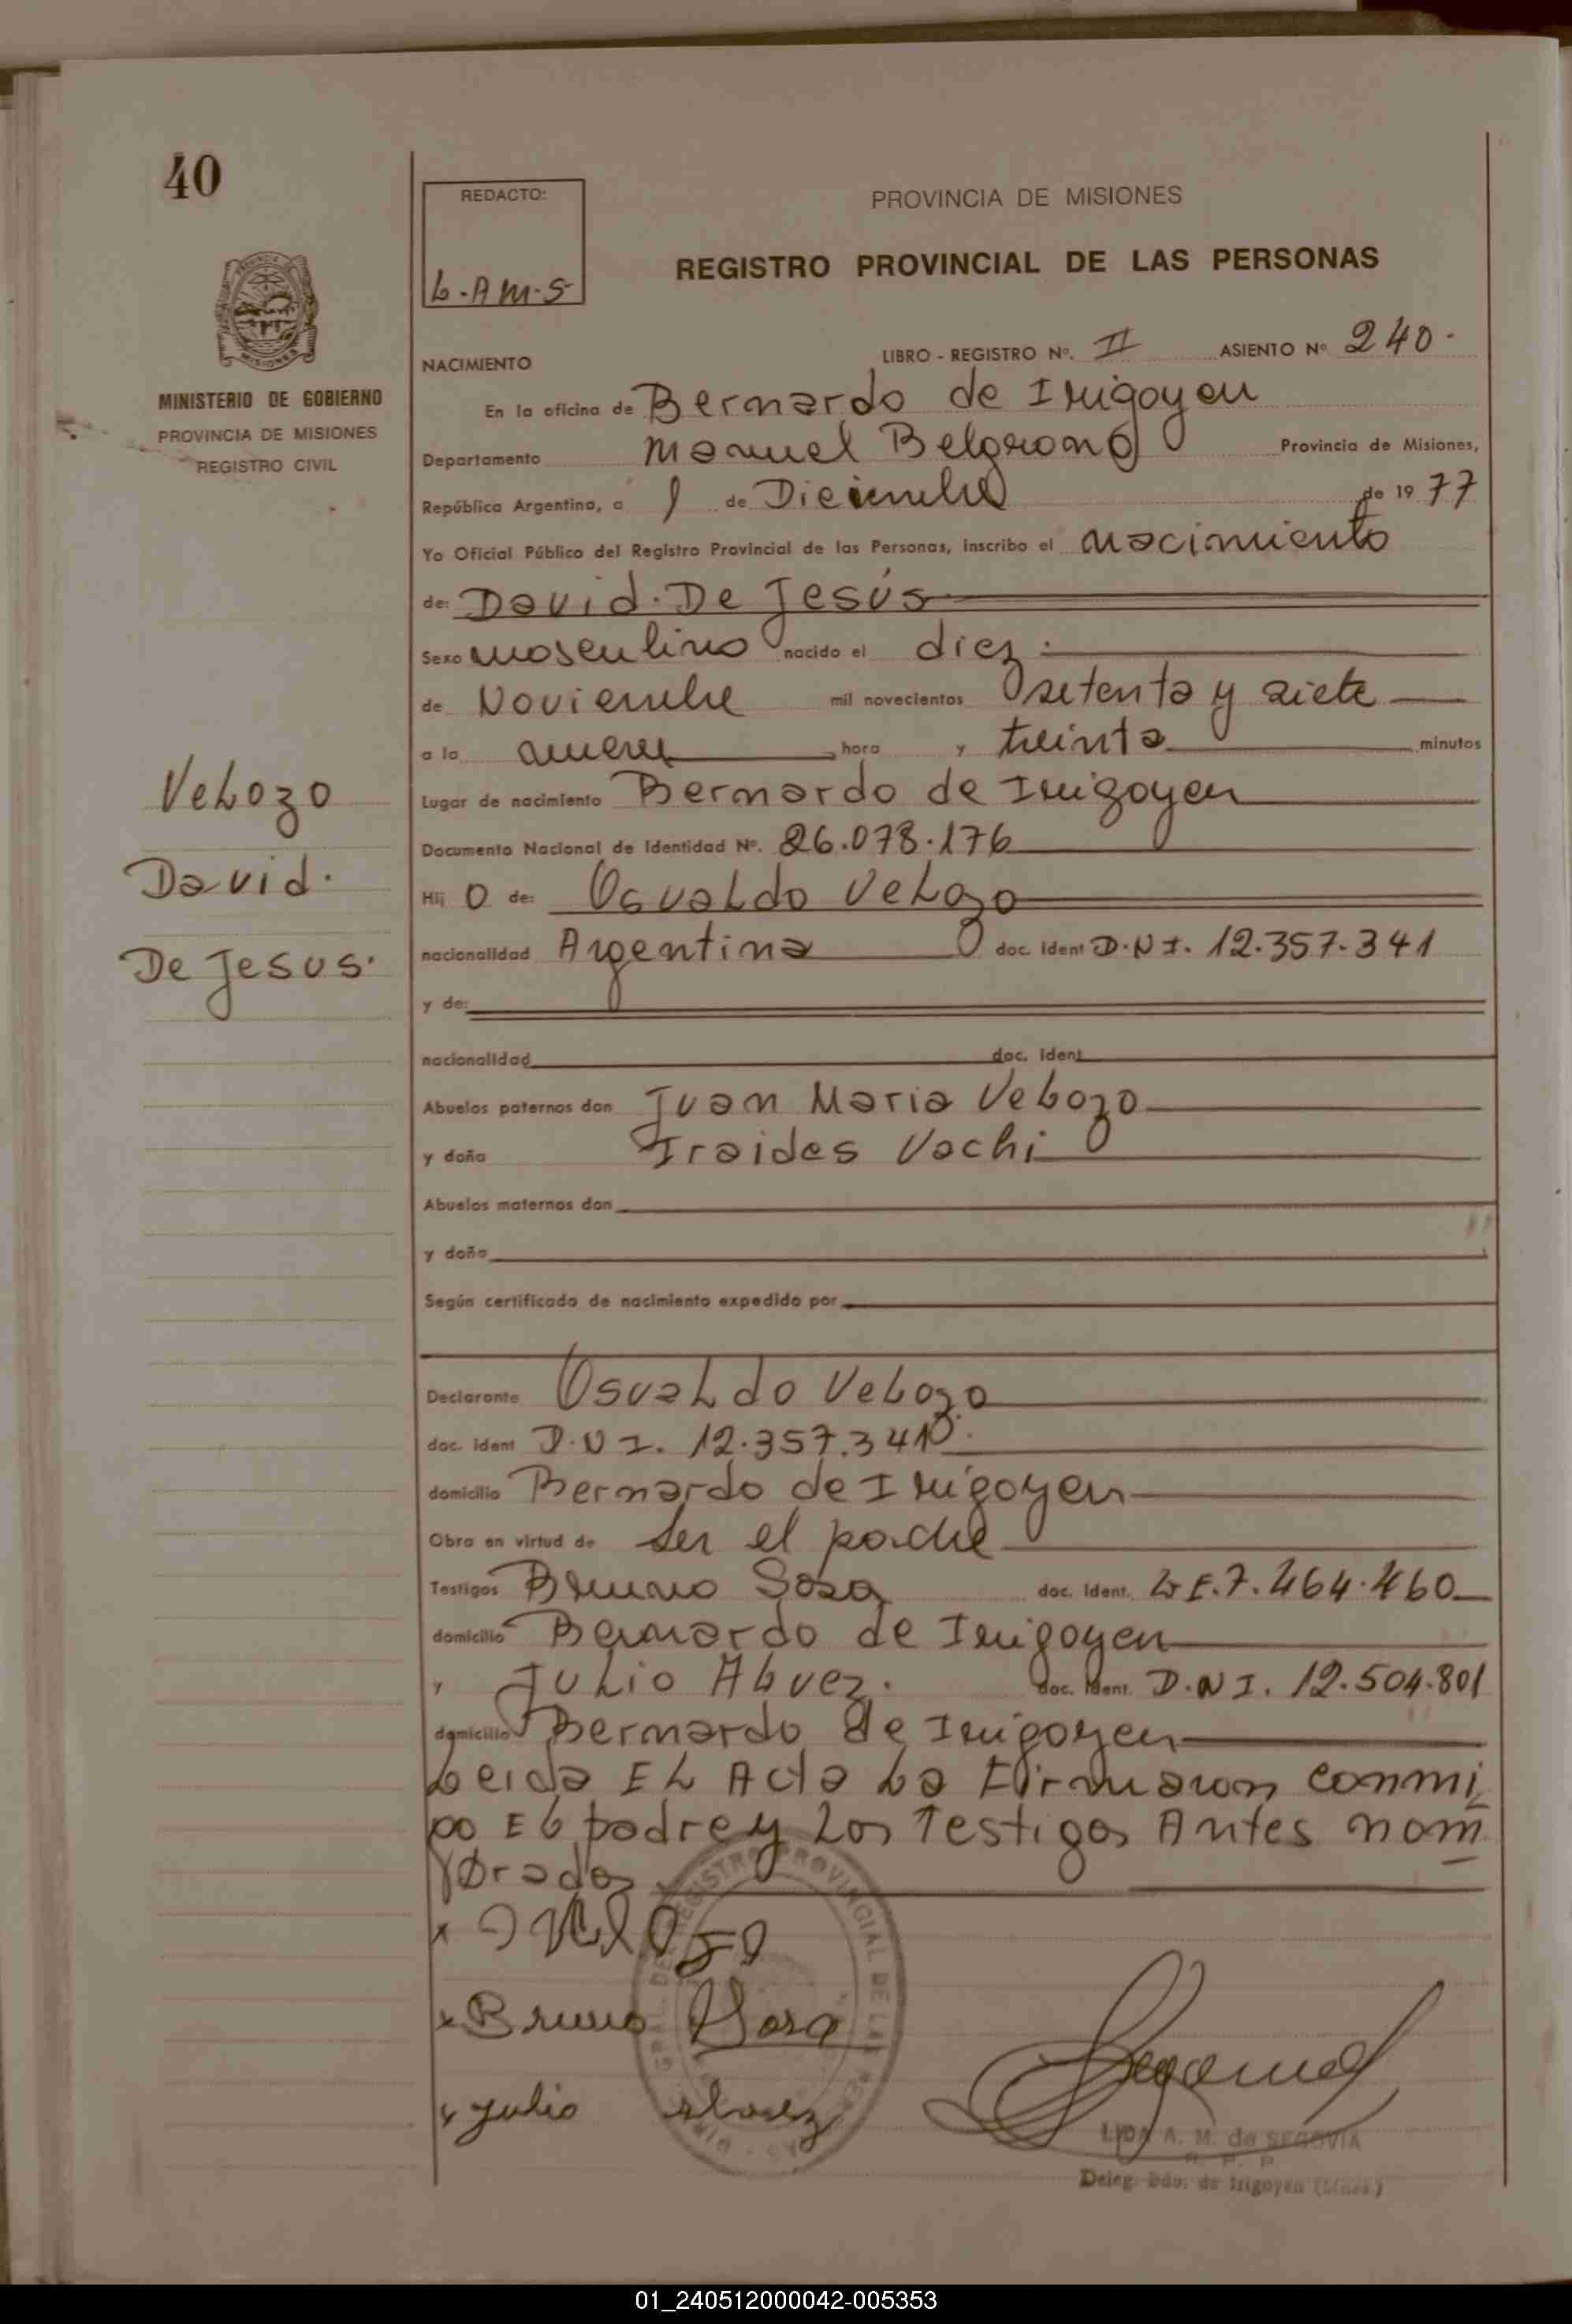 40
REDACTO:
L.A.M.S
PROVINCIA DE MISIONES
REGISTRO PROVINCIAL DE LAS PERSONAS
MINISTERIO DE GOBIERNO
PROVINCIA DE MISIONES
REGISTRO CIVIL
NACIMIENTO LIBRO - REGISTRO Nº. II ASIENTO Nº 240.
En la oficina de Bernardo de Irigoyen
Departamento Manuel Belgrano Provincia de Misiones,
República Argentina, a 1 de Diciembre de 19 77
Yo Oficial Público del Registro Provincial de las Personas, inscribo el nacimiento
de: David. De Jesús
Sexo masculino nacido el diez
de Noviembre mil novecientos setenta y siete
a la nueve hora y treinta minutos
Lugar de nacimiento Bernardo de Irigoyen
Documento Nacional de Identidad Nº. 26.078.176
Hij o de: Osvaldo Velozo
nacionalidad Argentina doc. ident D.N.I. 12.357.341
y de:
nacionalidad doc. ident
Abuelos paternos don Juan Maria Velozo
y doña Iraides Vachi
Abuelos maternos don
y doña
Según certificado de nacimiento expedido por
Velozo
David.
De Jesus.
Declarante Osvaldo Velozo
doc. ident D.N.I. 12.357.341
domicilio Bernardo de Irigoyen
Obra en virtud de ser el padre
Testigos Bruno Sosa doc. ident. L.E. 7.464.460
domicilio Bernardo de Irigoyen
y Julio Alvez. doc. ident. D.N.I. 12.504.801
domicilio Bernardo de Irigoyen
Leida EL Acta La Firmaron conmi
go EL padre y Los Testigos Antes nom
brados
x O Velozo
x Bruno Sosa
x Julio Alvez
LIDA A. M. de SEGOVIA
Deleg. Bdo. de Irigoyen (Mnes.)
01_240512000042-005353